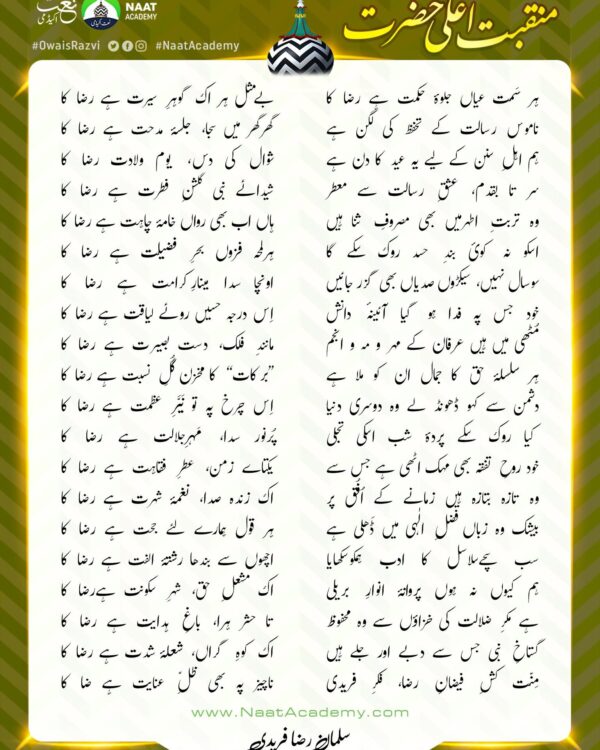 نعت اکیڈمی NAAT ACADEMY
#OwaisRazvi #NaatAcademy
منقبت اعلیٰ حضرت
ہر سمت عیاں جلوۂ حکمت ہے رضا کا بےمثل ہر اک گوہرِ سیرت ہے رضا کا
ناموسِ رسالت کے تحفظ کی لگن ہے گھر گھر میں سجا، جلسۂ مدحت ہے رضا کا
ہم اہلِ سنن کے لیے یہ عید کا دن ہے شوال کی دس، یومِ ولادت رضا کا
سر تا بقدم، عشقِ رسالت سے معطر شیدائے نبی گلشنِ فطرت ہے رضا کا
وہ تربتِ اطہر میں بھی مصروفِ ثنا ہیں ہاں اب بھی رواں خامۂ چاہت ہے رضا کا
اسکو نہ کوئی بندِ حسد روک سکے گا ہر لمحہ فزوں بحرِ فضیلت ہے رضا کا
سو سال نہیں، سیکڑوں صدیاں بھی گزر جائیں اونچا سدا مینارِ کرامت ہے رضا کا
خود جس پہ فدا ہو گیا آئینۂ دانش اِس درجہ حسیں روئے لیاقت ہے رضا کا
مُٹھی میں ہیں عرفان کے مہر و مہ و انجم مانندِ فلک، دستِ بصیرت ہے رضا کا
ہر سلسلۂ حق کا جمال ان کو ملا ہے ”برکات“ کا مخزن گُلِ نسبت ہے رضا کا
دشمن سے کہو ڈھونڈ لے وہ دوسری دنیا اِس چرخ پہ تو نَیّرِ عظمت ہے رضا کا
کیا روک سکے پردۂ شب اسکی تجلی پُرنور سدا، مہرِ جلالت ہے رضا کا
خود روحِ تفقہ بھی مہک اٹھی ہے جس سے یکتائے زمن، عطرِ فقاہت ہے رضا کا
وہ تازہ بتازہ ہیں زمانے کے اُفق پر اک زندہ صدا، نغمۂ شہرت ہے رضا کا
بیشک وہ زباں فضلِ الٰہی میں ڈھلی ہے ہر قول ہمارے لئے حجت ہے رضا کا
سب سچے سلاسل کا ادب ہمکو سکھایا اچھوں سے بندھا رشتۂ الفت ہے رضا کا
ہم کیوں نہ ہوں پروانۂ انوارِ بریلی اک مشعلِ حق، شہرِ سکونت ہے رضا کا
ہے مکرِ ضلالت کی خزاؤں سے وہ محفوظ تا حشر ہرا، باغِ ہدایت ہے رضا کا
گستاخِ نبی جس سے دبے اور جلے ہیں اک کوہِ گراں، شعلۂ شدت ہے رضا کا
مِنّت کشِ فیضانِ رضا، فکرِ فریدی ناچیز پہ بھی ظلِّ عنایت ہے ضا کا
www.NaatAcademy.com
سلمان رضا فریدی